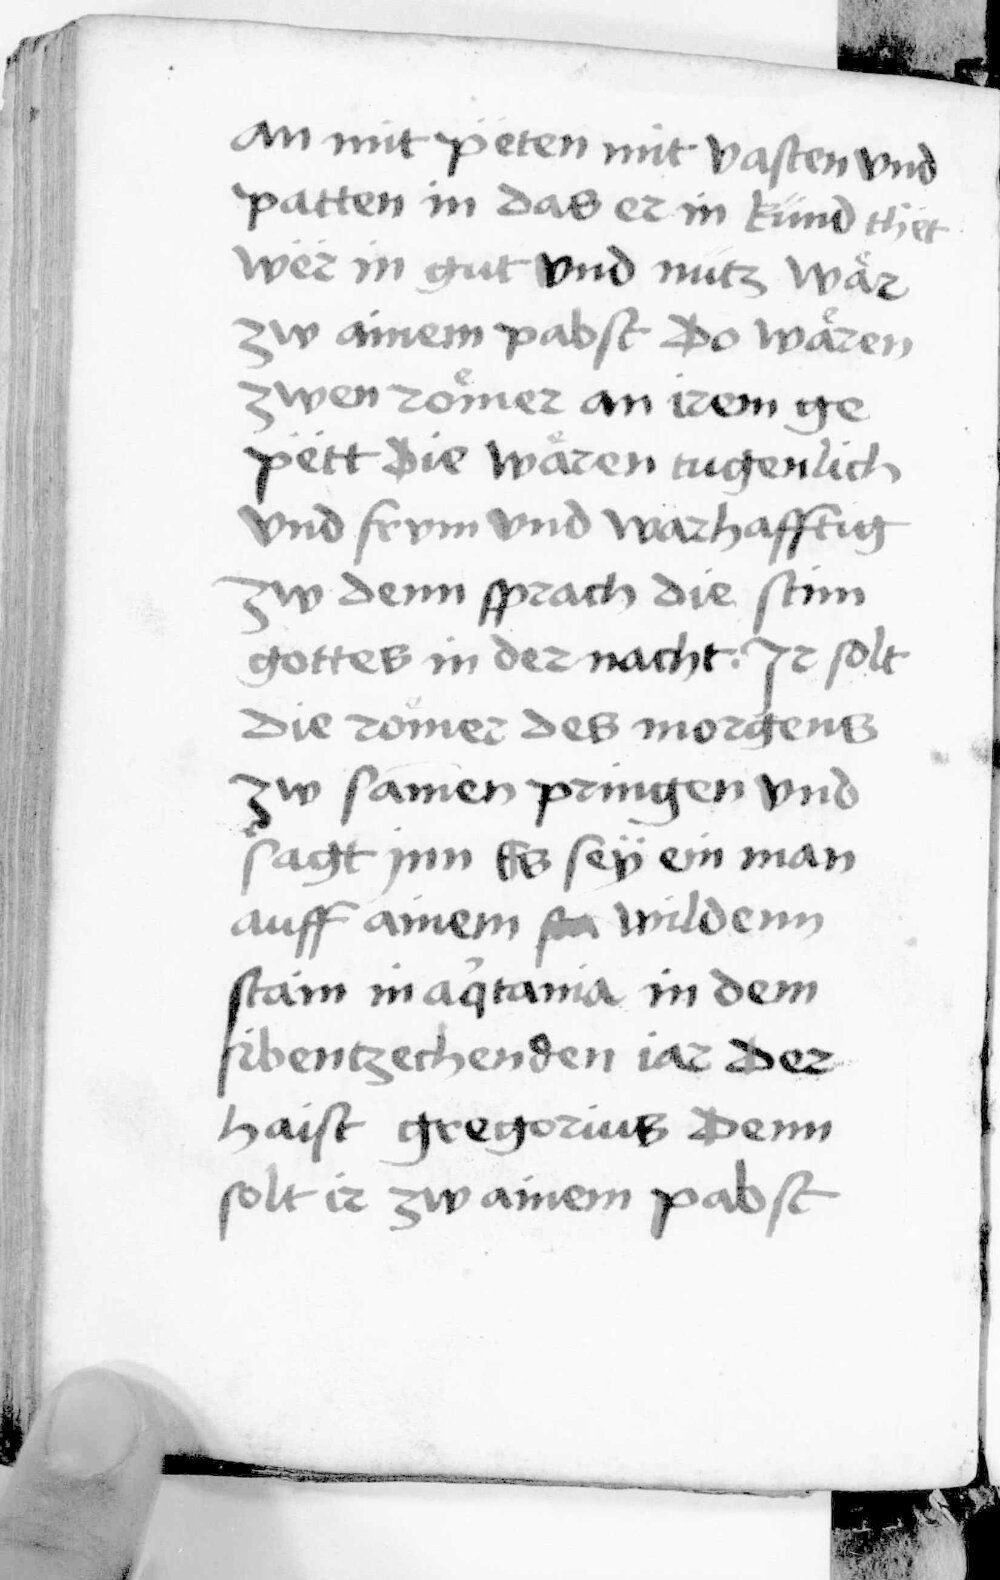 an mit pëten mit vasten vnd
patten in das er in künd thët
wër in gut vnd nütz wåͤr
zw ainem pabst Do waͤren
zwen roͤmer an irem ge
pëtt Die waͤren tugenlich
vnd frvm vnd warhafftig
zw denn sprach die stim
gottes in der nacht. Ir solt
die roͤmer des morgens
zw samen pringen vnd
sagt jnn Es seÿ ein man
auff ainem wildenn
stain in aq̇tania in dem
sibentzechenden iar Der
haist gregorius Denn
solt ir zw ainem pabst